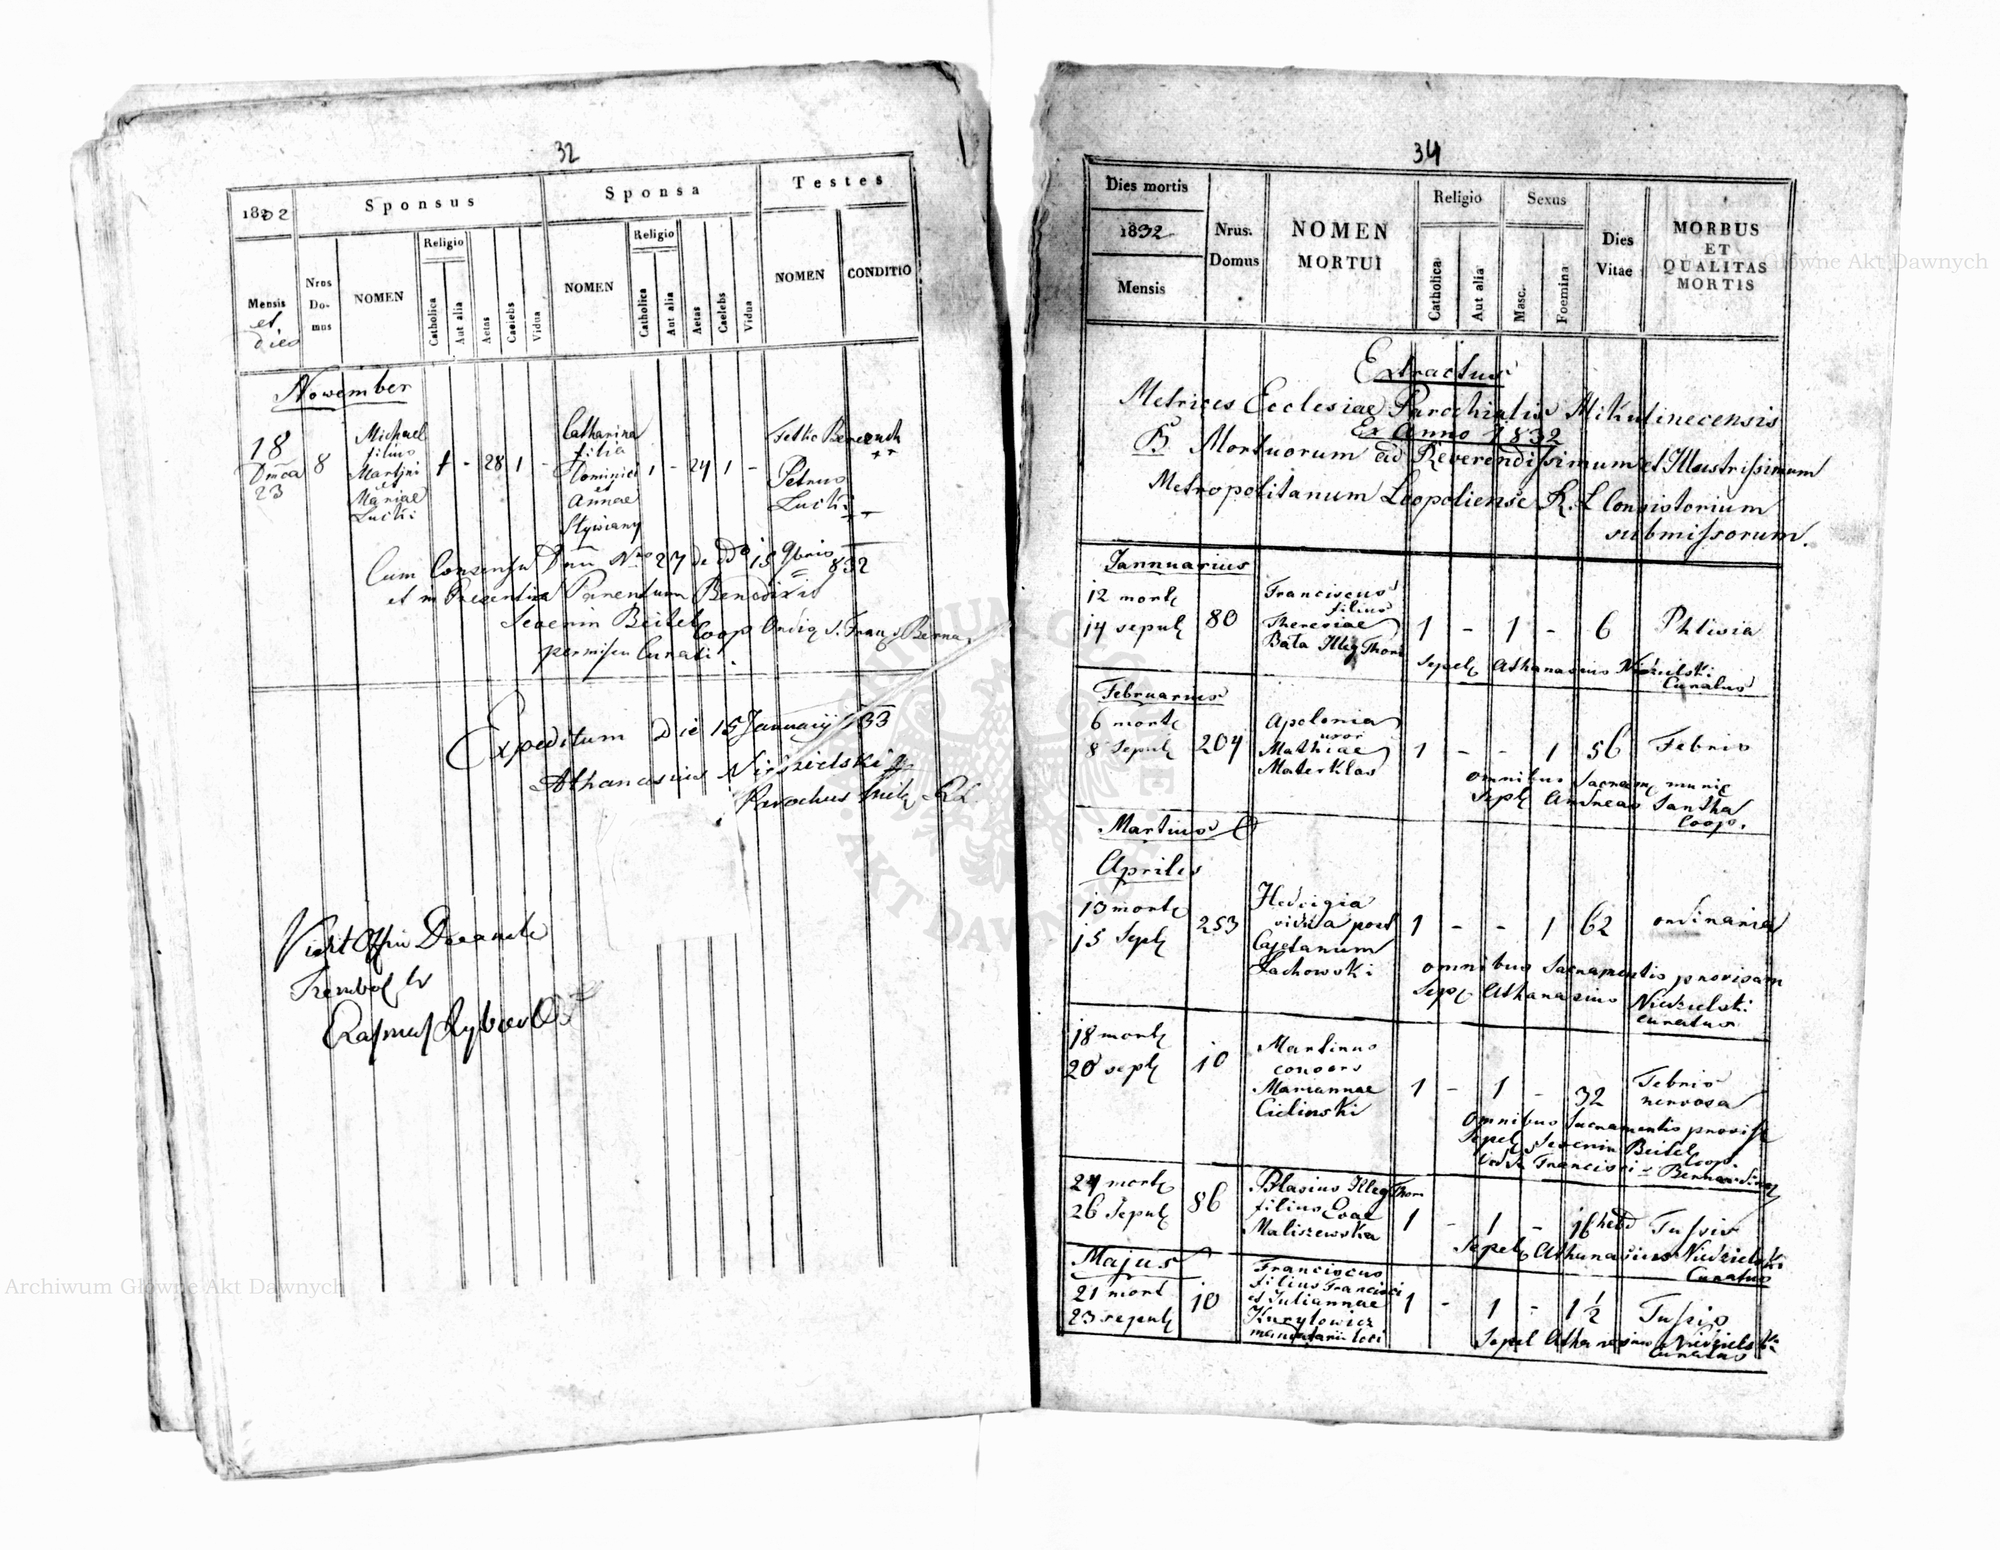 32
1832
Sponsus
Sponsa
Testes
Mensis
et
dies
Nrus
Do-
mus
NOMEN
Religio
Catholica
Aut alia
Aetas
Caelebs
Vidua
NOMEN
Religio
Catholica
Aut alia
Aetas
Caelebs
Vidua
NOMEN
CONDITIO
November
18
23
8
Michael
filius
Martini
et
Mariae
Lucki
1 - 28 1 -
Catharina
filia
Dominici
et
Annae
1 - 24 1 -
Petrus
Lucki
Cum Consensu Nro 27 de 15 9bris 832
et in Presentia Parentum Benedixit
Severin Beitel Coop Ord S. Franc
Curati.
Expeditum Die 15 Januarij 833
Athanasius Niedzielski
Parochus
Vidit Decanale
Trembol
34
Dies mortis
1832
Mensis
Nrus.
Domus
NOMEN
MORTUI
Religio
Catholica
Aut alia
Sexus
Masc.
Foemina
Dies
Vitae
MORBUS
ET
QUALITAS
MORTIS
Extractus
Metrices Ecclesiae Parochialis Mikulinecensis
Ex Anno 1832
Mortuorum ad Reverendissimum et Illustrissimum
Metropolitanum Leopoliense R. L Consistorium
submissorum.
Jannuarius
12 mort
14 sepult
80
Franciscus
filius
Theresiae
Bała Illeg Thori
1 - 1 - 6 Phtisia
Sepel Athanasius Niedzielski
Curatus
Februarius
6 mort
8 Sepult
204
Apolonia
uxor
Mathiae
Materklas
1 - - 1 56 Febris
omnibus Sacram munit
Sepel Andreas Jantha
Coop.
Martius O
Aprilis
13 mort
15 Sepl
253
Hedvigia
vidua post
Cajetanum
Lachowski
1 - - 1 62 ordinaria
omnibus Sacramentis provisam
Sepel Athanasius Niedzielski
curatus
18 mort
20 sepl
10
Martinus
consors
Mariannae
Cielinski
1 - 1 - 32 Febris
nervosa
omnibus Sacramentis provis
Sepel Severin Beitel
Coop.
Ord S. Francisci
24 mort
26 Sepult
86
Blasius Illeg Thori
filius Evae
Maliszewska
1 - 1 - 16 hebd Tussis
Sepel Athanasius Niedzielski
Curatus
Majus
21 mort
23 sepult
10
Franciscus
filius Francisci
et Juliannae
Kurylowicz
1 - 1 - 1 1/2 Tussis
Sepel Athanasius Niedzielski
Curatus
ARCHIWUM GŁÓWNE AKT DAWNYCH
Archiwum Główne Akt Dawnych
Archiwum Główne Akt Dawnych